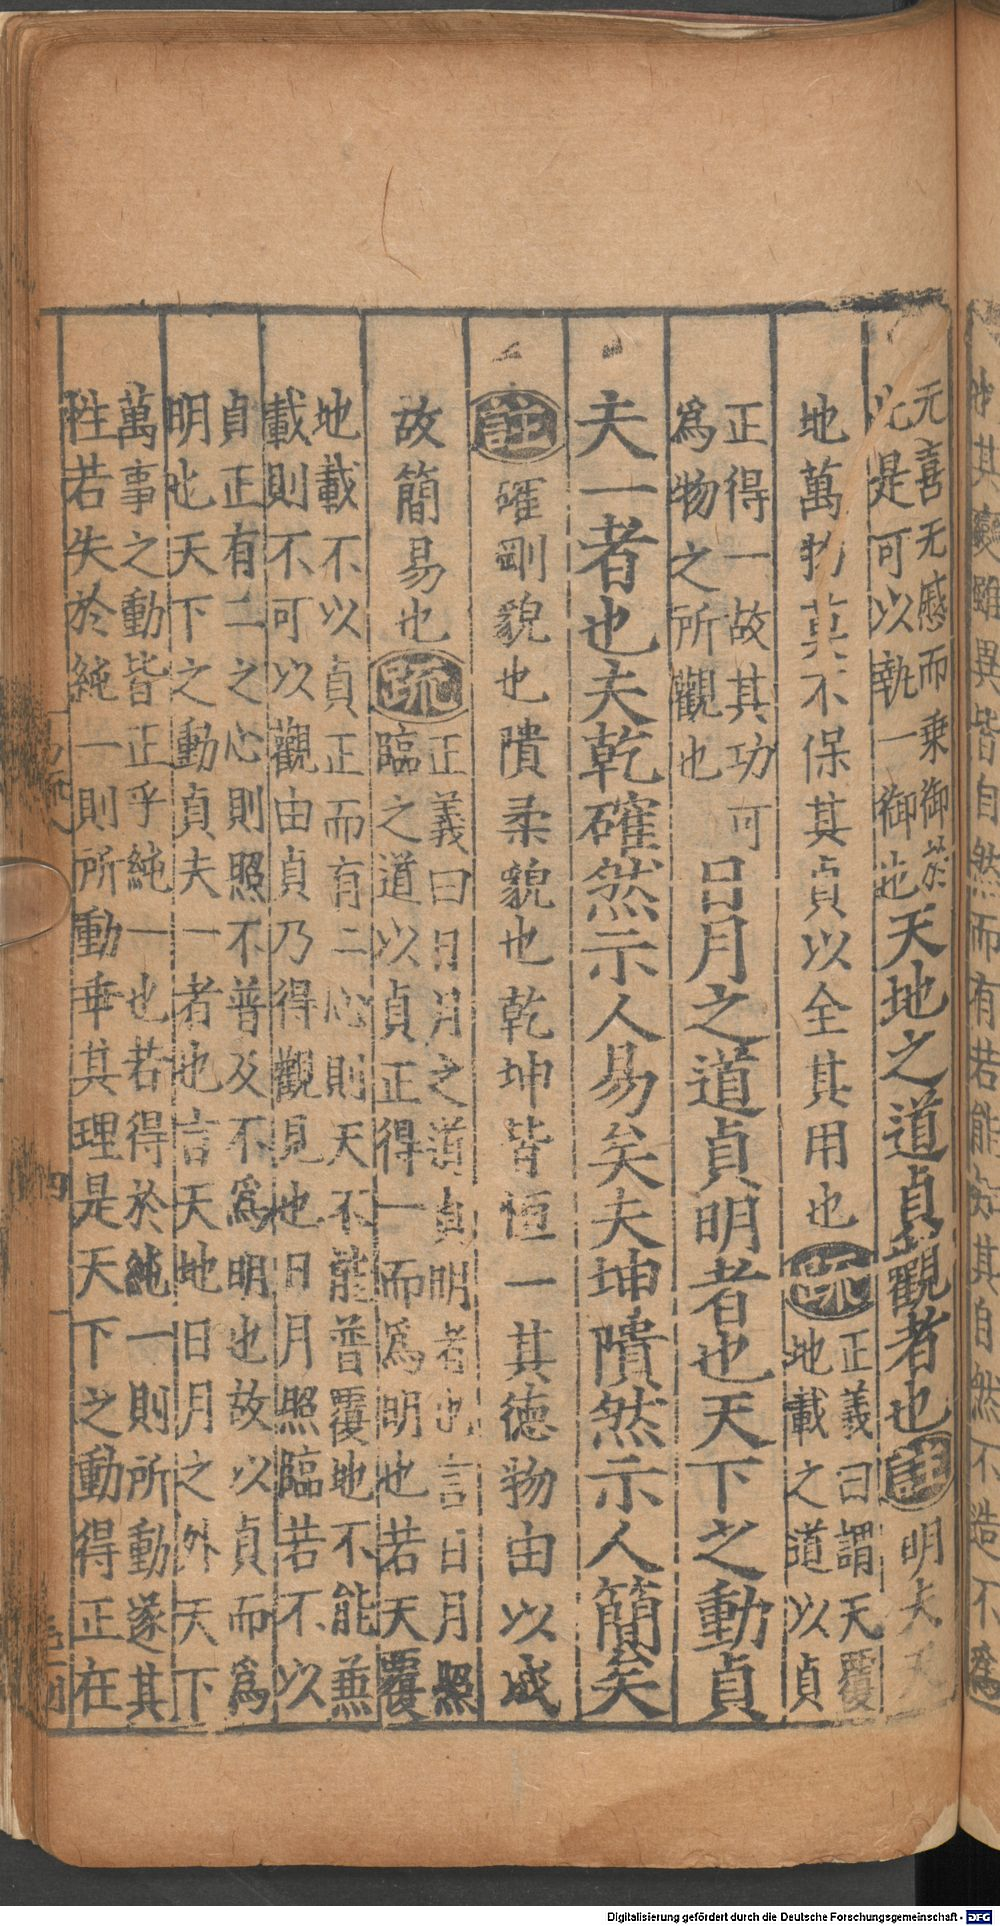 元喜无慼而乗御於
此是可以執一御也
天地之道貞觀者也註明夫天
地萬物莫不保其貞以全其用也疏
正義曰謂天覆
地載之道以貞
正得一故其功可
爲物之所觀也
日月之道貞明者也天下之動貞
夫一者也夫乾確然示人易矣夫坤隤然示人簡矣
註確剛貌也隤柔貌也乾坤皆恒一其德物由以成
故簡易也疏
正義曰日月之道貞明者也言日月照
臨之道以貞正得一而爲明也若天覆
地載不以貞正而有二心則天不能普覆地不能兼
載則不可以觀由貞乃得觀見也日月照臨若不以
貞正有二之心則照不普及不爲明也故以貞而爲
明也天下之動貞夫一者也言天地日月之外天下
萬事之動皆正乎純一也若得於純一則所動遂其
性若失於純一則所動乖其理是天下之動得正在
Digitalisierung gefördert durch die Deutsche Forschungsgemeinschaft - DFG